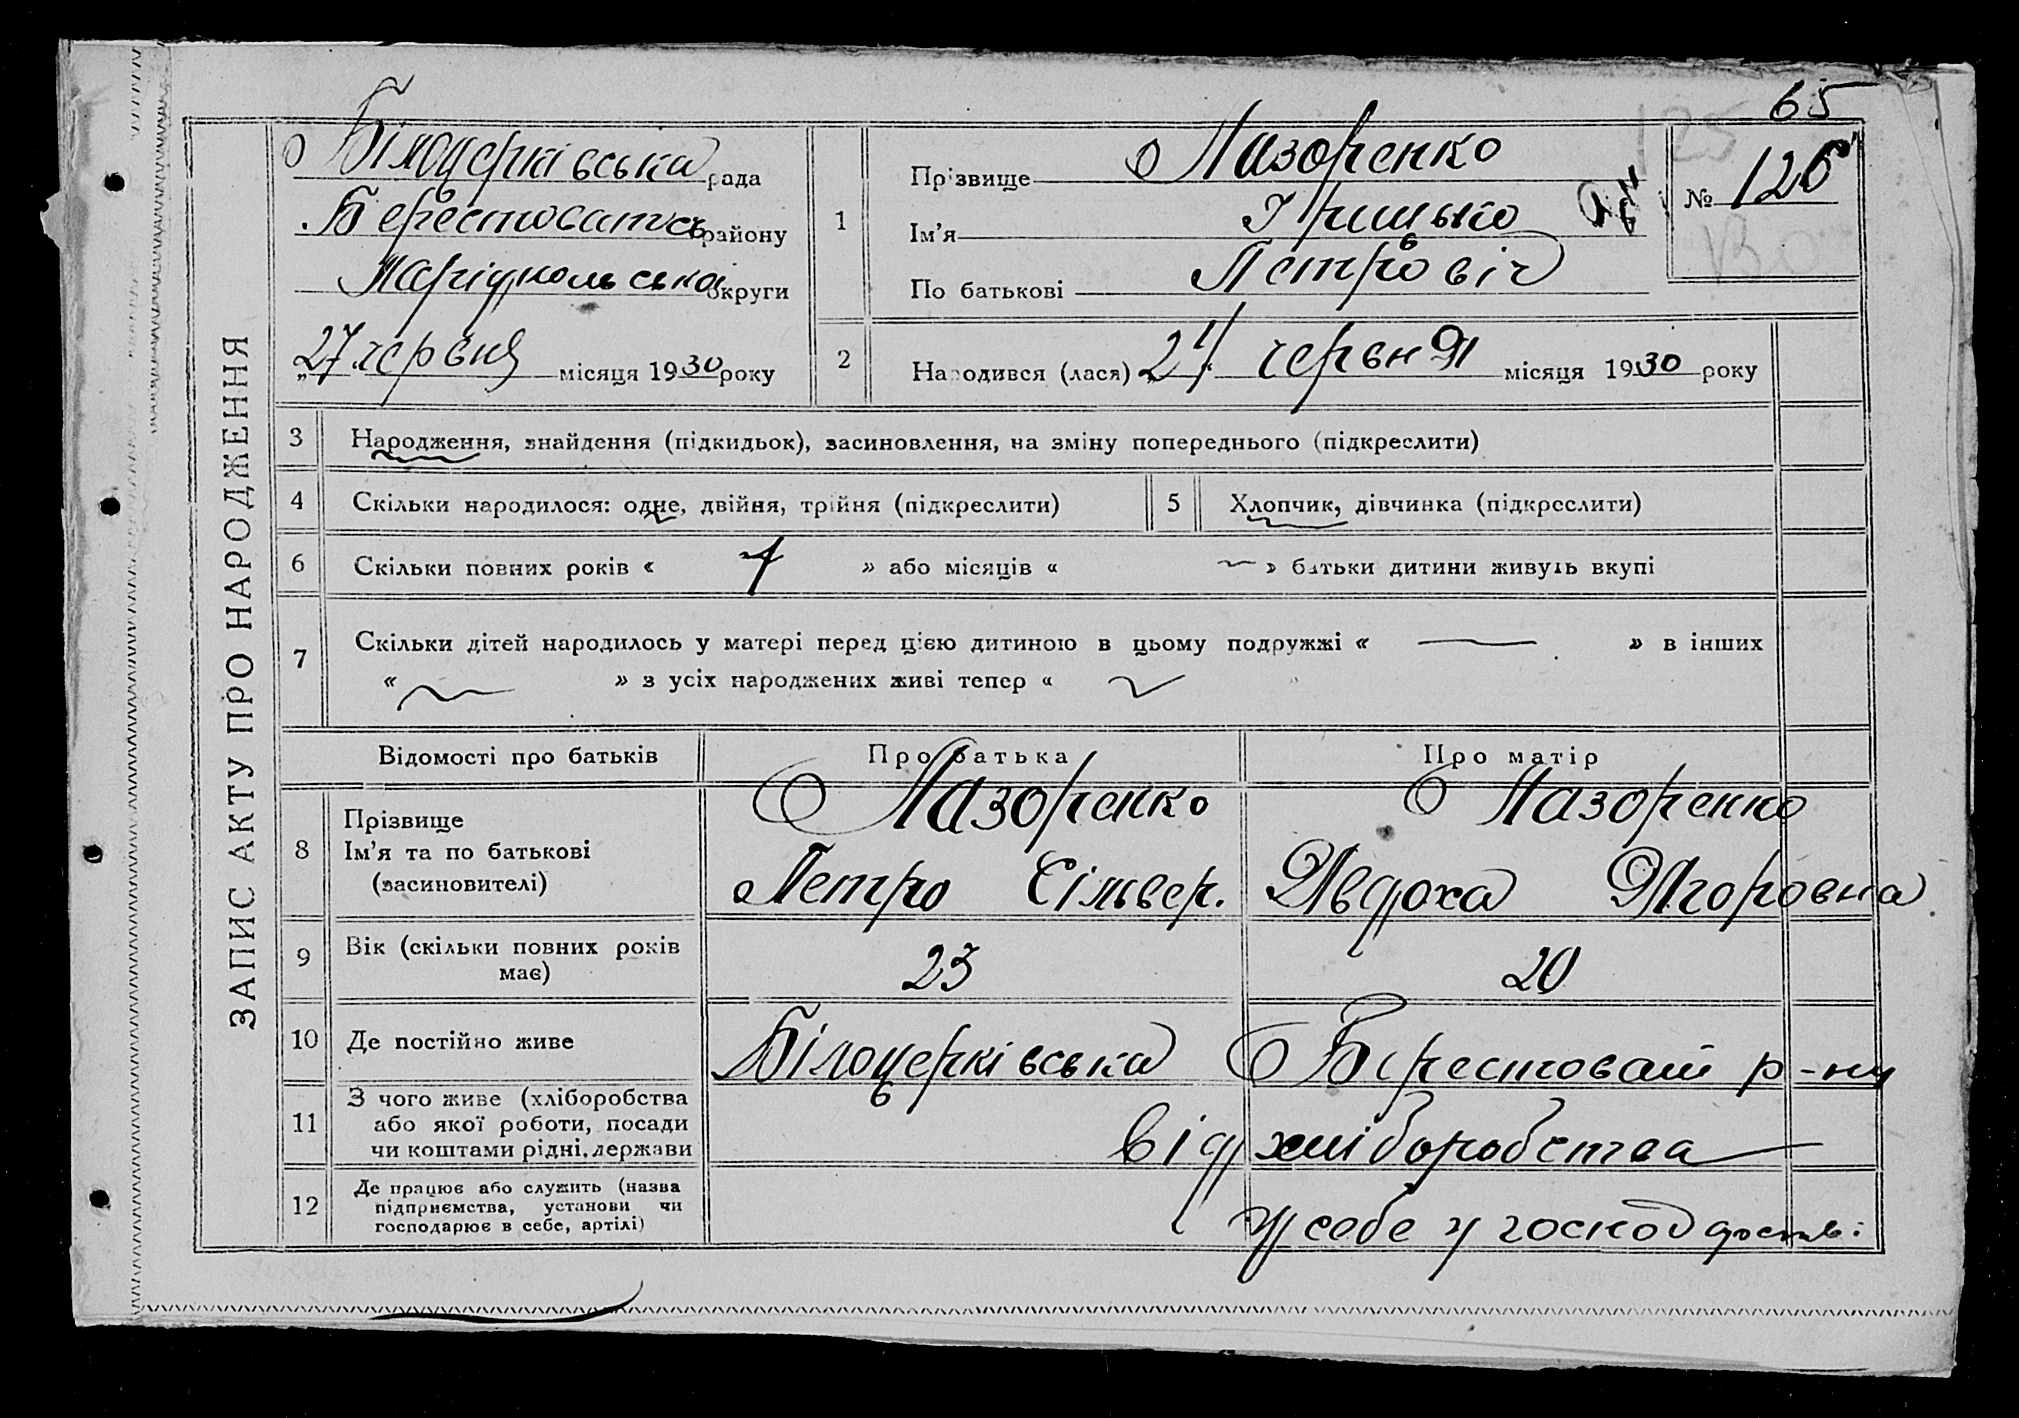 65
ЗАПИС АКТУ ПРО НАРОДЖЕННЯ
Білоцерківська рада
Берестоватсь району
Маріупольської округи
„27 червня місяця 1930 року
1
Прізвище Лазоренко
Ім'я Грицько
По батькові Петровіч
№ 126
125
2
Народився (лася) 21 червня місяця 1930 року
3 Народження, знайдення (підкидьок), засиновлення, на зміну попереднього (підкреслити)
4 Скільки народилося: одне, двійня, трійня (підкреслити) 5 Хлопчик, дівчинка (підкреслити)
6 Скільки повних років « 1 » або місяців « » батьки дитини живуть вкупі
7 Скільки дітей народилось у матері перед цією дитиною в цьому подружжі « — » в інших
« » з усіх народжених живі тепер «
Відомості про батьків Про батька Про матір
8 Прізвище Лазоренко Лазоренко
Ім'я та по батькові
(засиновителі) Петро Сільвер. Явдоха Ягоровна
9 Вік (скільки повних років
має) 23 20
10 Де постійно живе Білоцерківська Берестоват р-ну
11 З чого живе (хліборобства
або якої роботи, посади
чи коштами рідні, держави від хліборобства
12 Де працює або служить (назва
підприємства, установи чи
господарює в себе, артілі) у себе у господарстві